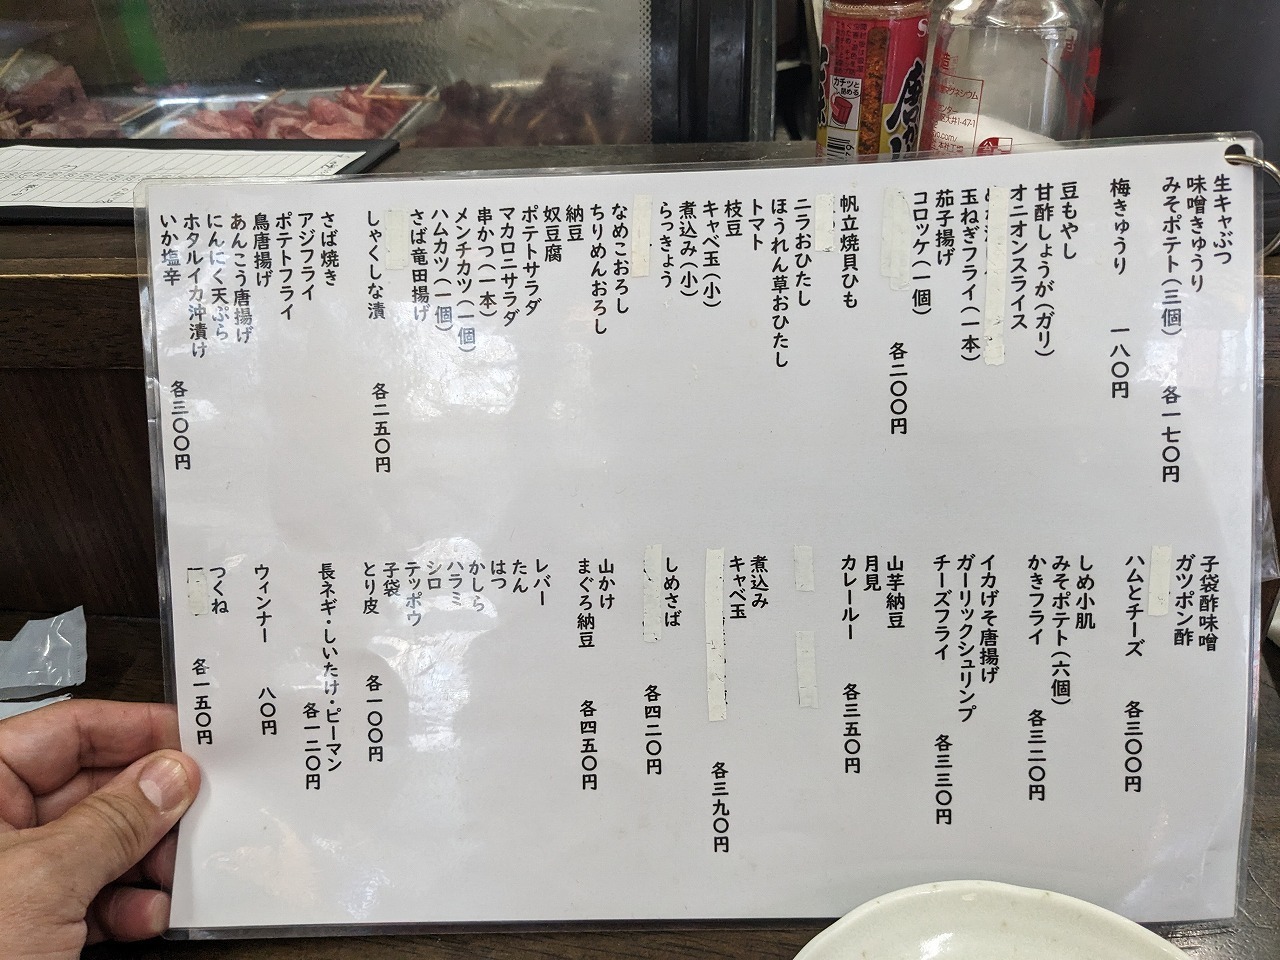 生キャぶつ
味噌きゅうり
みそポテト(三個) 各一七〇円
梅きゅうり 一八〇円
豆もやし
甘酢しょうが(ガリ)
オニオンスライス
玉ねぎフライ(一本)
茄子揚げ
コロッケ(一個)
各二〇〇円
帆立焼貝ひも
ニラおひたし
ほうれん草おひたし
トマト
枝豆
キャベ玉(小)
煮込み(小)
らっきょう
なめこおろし
ちりめんおろし
納豆
奴豆腐
ポテトサラダ
マカロニサラダ
串かつ(一本)
メンチカツ(一個)
ハムカツ(一個)
さば竜田揚げ
しゃくしな漬 各二五〇円
さば焼き
アジフライ
ポテトフライ
鳥唐揚げ
あんこう唐揚げ
にんにく天ぷら
ホタルイカ沖漬け
いか塩辛 各三〇〇円
子袋酢味噌
ガツポン酢
ハムとチーズ 各三〇〇円
しめ小肌
みそポテト(六個)
かきフライ 各三二〇円
イカげそ唐揚げ
ガーリックシュリンプ
チーズフライ 各三三〇円
山芋納豆
月見
カレールー 各三五〇円
煮込み
キャベ玉
各三九〇円
しめさば
各四二〇円
山かけ
まぐろ納豆 各四五〇円
レバー
たん
はつ
かしら
ハラミ
シロ
テッポウ
子袋
とり皮 各一〇〇円
長ネギ・しいたけ・ピーマン
各一二〇円
ウィンナー 八〇円
つくね
各一五〇円
カチッと
閉める